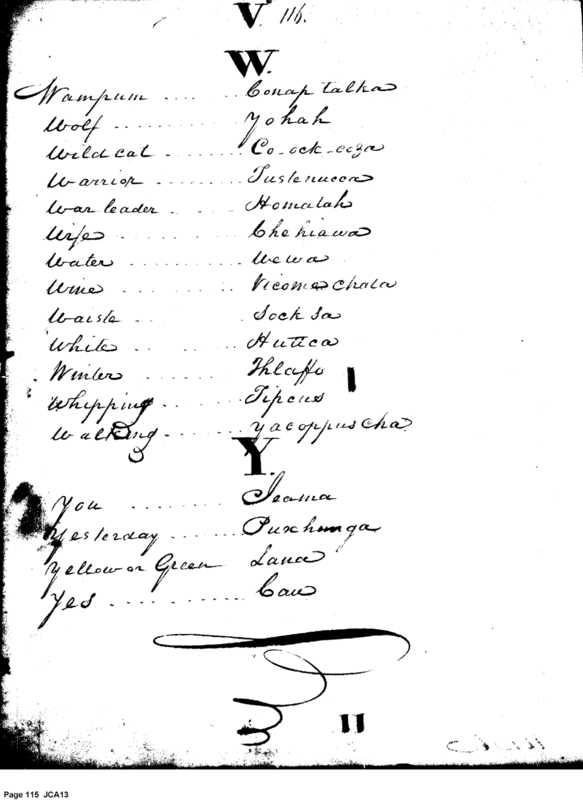 V. 116.
W.
Wampum .... Conap talka
Wolf ......... Yohah
Wild cat ...... Co-ock-coza
Warrior ...... Tustenucca
War leader .... Homatah
Wife ........ Chehiawa
Water ....... Wewa
Wine ........ Vicomeschala
Waiste ...... Sock sa
White ....... Huttca
Winter ...... Thlaffo
Whipping ..... Tipcus
Walking ...... Yacoppuscha
Y.
You ........ Seama
Yesterday ...... Puxhunga
Yellow or Green Lana
Yes .......... Cau
Page 115 JCA13